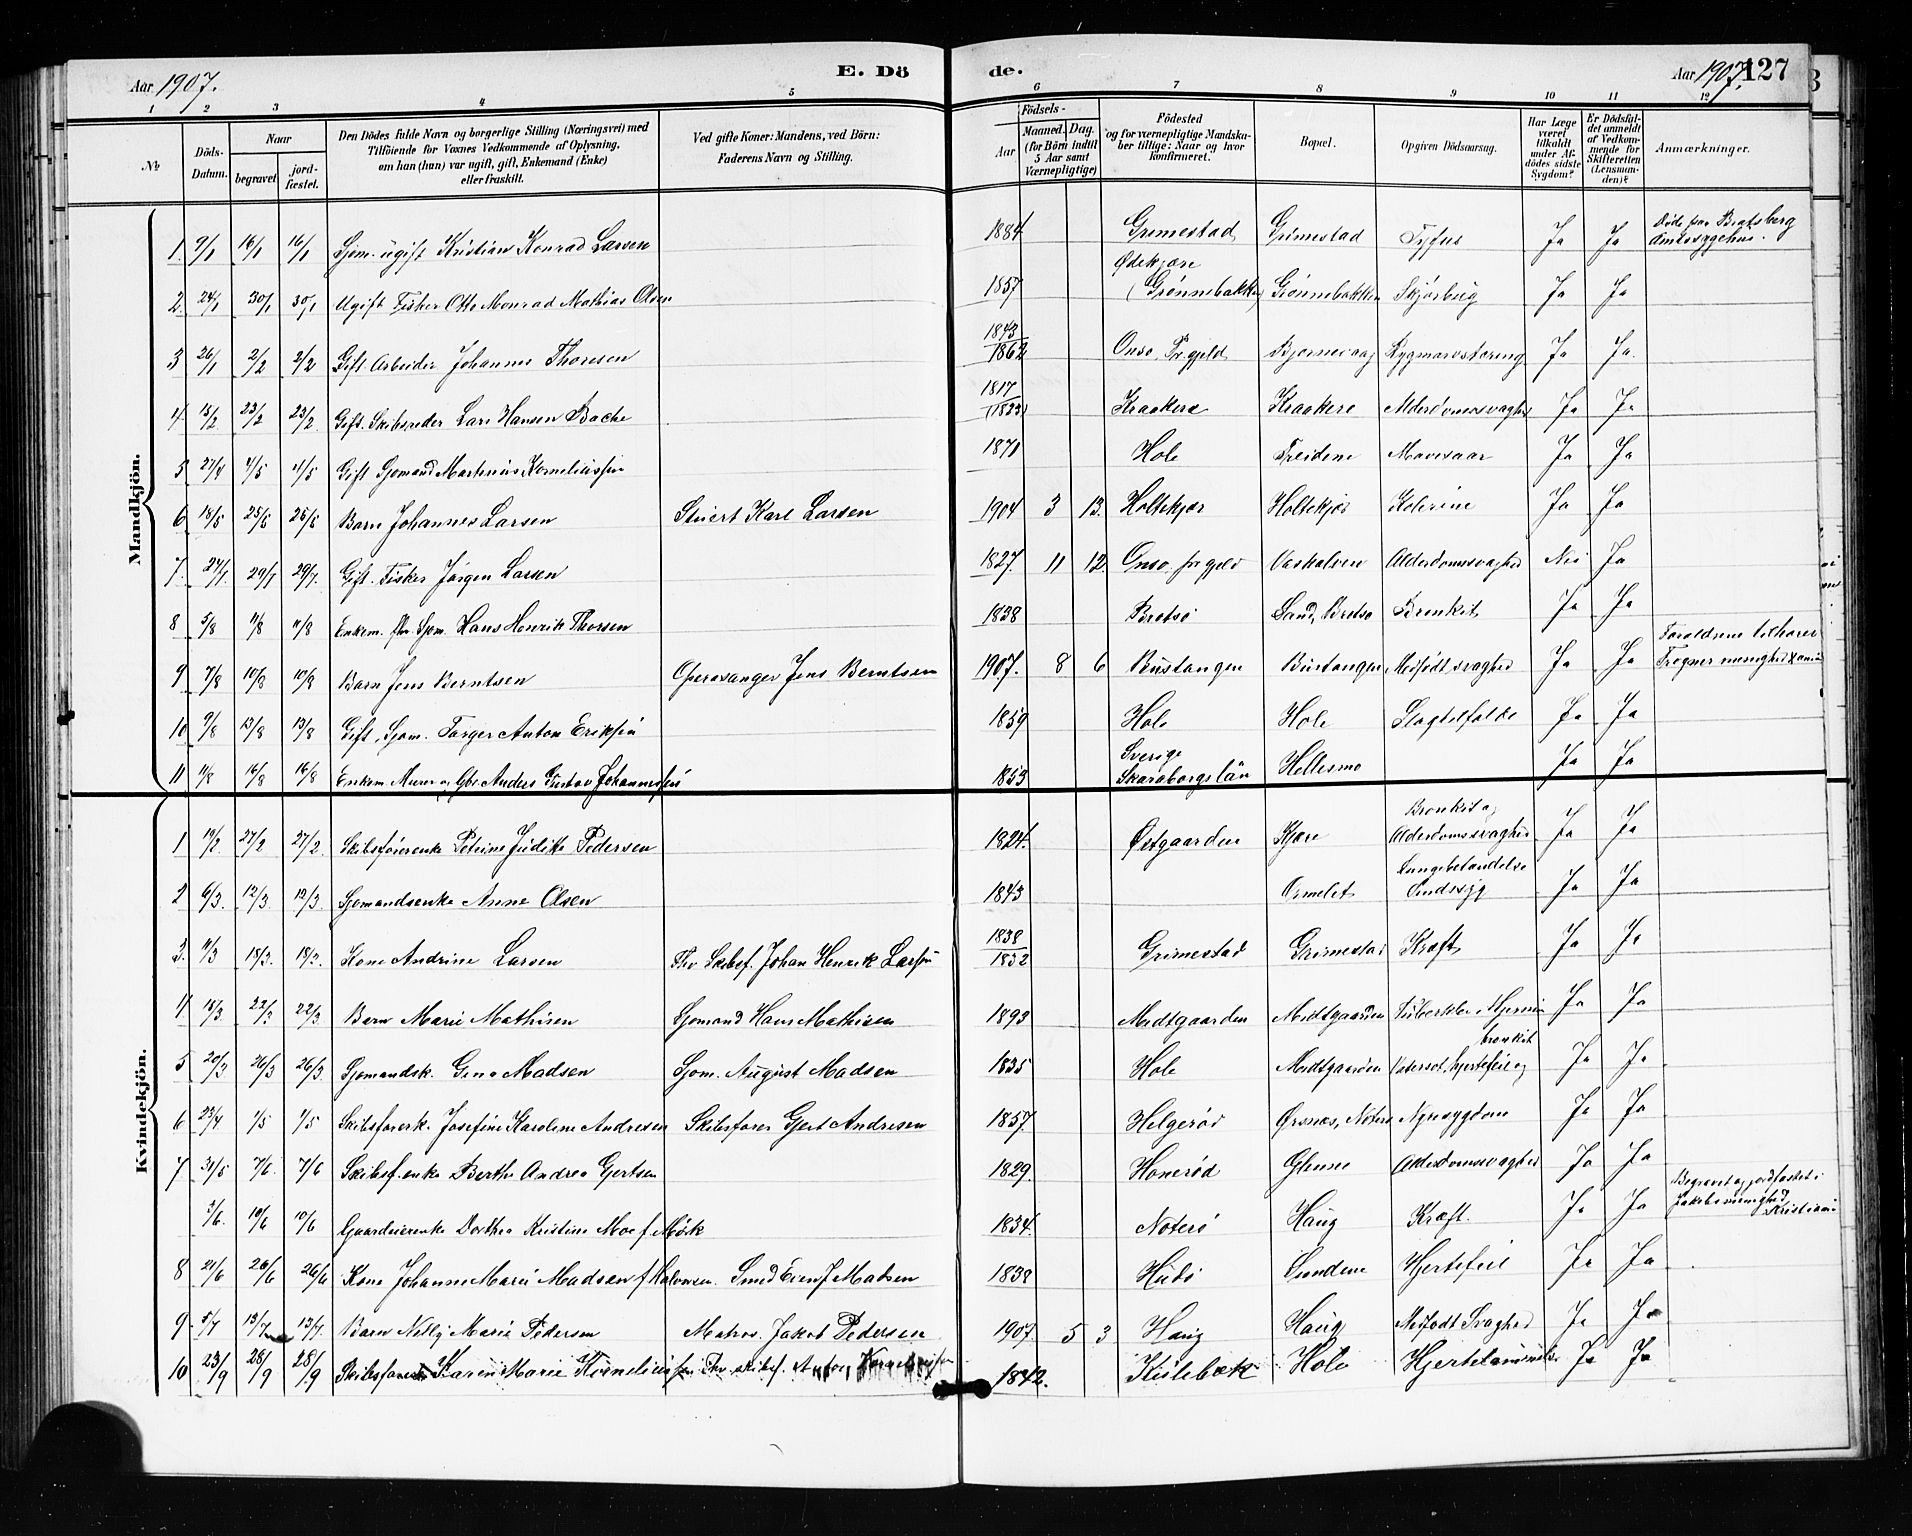 Aar 1907. E. Dö de. Aar 1907. 127
1 2 3 4 5 6 7 8 9 10 11 12
№ Döds-Datum. Naar begravet jordfæstet. Den Dödes fulde Navn og borgerlige Stilling (Næringsvei) med Tilföiende for Voxnes Vedkommende af Oplysning, om han (hun) var ugift, gift, Enkemand (Enke) eller fraskilt. Ved gifte Koner: Mandens, ved Börn: Faderens Navn og Stilling. Födsels- Aar Maaned. Dag. (for Börn indtil 5 Aar samt Værnepligtige) Födested og for værnepligtige Mandskaber tillige: Naar og hvor konfirmeret. Bopæl. Opgiven Dödsaarsag. Har Læge været tilkaldt under Afdödes sidste Sygdom? Er Dödsfaldet anmeldt af Vedkommende for Skifteretten (Lensmanden)? Anmærkninger.
Mandkjön.
1. 9/1 16/1 16/1 Sjøm. ugift Kristian Konrad Larsen 1884 Grimestad Grimestad Tyfus Ja Ja Døde paa Bratsberg amtssygehus.
2. 24/1 30/1 30/1 Ugift Fisker Otto Monrad Mathias Olsen 1857 Ødekjære (Grønnebakken) Grønnebakken Skjørbug Ja Ja
3 26/1 2/2 2/2 Gift. Arbeider Johannes Thoresen 1843/1862 Onsø Pr.gjeld Bjørnevaag Rygmarvstæring Ja Ja.
4 15/2 23/2 23/2 Gift. Skibsreder Lars Hansen Bache 1817/1833 Kraakere Kraakere Alderdomssvaghed Ja Ja
5 27/4 4/5 4/5 Gift Sjømand Martinius Korneliussen 1871 Hole Treidene Mavesaar Ja Ja
6 18/5 25/5 25/5 Barn Johannes Larsen Stuert Karl Larsen 1904 3 13. Holtekjær Holtekjær Kolerine Ja Ja
7. 24/7 29/7 29/7. Gift. Fisker Jørgen Larsen 1827. 11 12. Onsø pr.gjeld Vaskalven Alderdomssvaghed Nei Ja
8 5/8 11/8 11/8 Enkem. fhv. Sjøm. Hans Henrik Thorsen 1838 Bratsø Sand, Bratsø Bronkit Ja Ja
9 7/8 10/8 10/8 Barn Jens Berntsen Operasanger Jens Berntsen 1907. 8 6 Bustangen Bustangen Medfødt svaghed Ja Ja Forældrene tilhører Frogner menighed
10 9/8 13/8 13/8 Gift, Sjøm. Torger Anton Eriksen 1859 Hole Hole Slagtilfælde Ja Ja
11 11/8 16/8 16/8 Enkem. Murer og Gbr. Anders Gustav Johannessen 1853 Sverige Skaraborgslän Hellesmo Ja Ja
Kvindekjön.
1 19/2 27/2 27/2. Skibsførerenke Petrine Judithe Pedersen 1824. Østgaarden Kjære Bronkit og Alderdomssvaghed Ja Ja
2 6/3. 12/3. 12/3. Sjømandsenke Anne Olsen 1843 Ormelet Lungebetændelse Sindssyg Ja Ja
3. 11/3 18/3. 18/3. Kone Andrine Larsen Fhv Skibsf. Johan Henrik Larsen 1838/1832 Grimestad Grimestad Kræft Ja Ja
4 18/3. 22/3 22/3. Barn Marie Mathisen Sjømand Hans Mathisen 1893 Medtgaarden Medtgaarden Ja Ja
5 20/3 26/3 26/3. Sjømandsk. Gina Madsen Sjøm. August Madsen 1835 Hole Medtgaarden Vatersot, hjertefeil og bronkit Ja Ja
6 23/4 1/5 1/5 Skibsførerk. Josefine Karoline Andresen Skibsfører Gert Andresen 1857. Helgerød Ørsnes, Nøterø Nyresygdom Ja Ja
7 31/5 7/6. 7/6 Skibsf.enke Berthe Andrea Gjertsen 1829. Honerød Glenne Alderdomssvaghed Ja Ja
5/6. 10/6 10/6 Gaardeierenke Dorthea Kristine Moe f. Mørk 1834. Nøterø Haug Kræft. Ja Ja Begravet og jordfæstet i Jakobs menighed, Kristiania
8 21/6 26/6 26/6 Kone Johanne Marie Madsen f. Halvorsen. Smed Even J Madsen 1838 Hudø Sundene Hjertefeil Ja Ja
9. 5/7 13/7 13/7. Barn Nelly Marie Pedersen Matros. Jakob Pedersen 1907. 5 3 Haug Haug Medfødt Svaghed Ja Ja
10 23/9 28/9 28/9 Skibsførerk Karen Marie Korneliussen Fhv. skibsf. Anton Korneliussen 1842. Kulebæk Hole Hjertelammelse Ja Ja